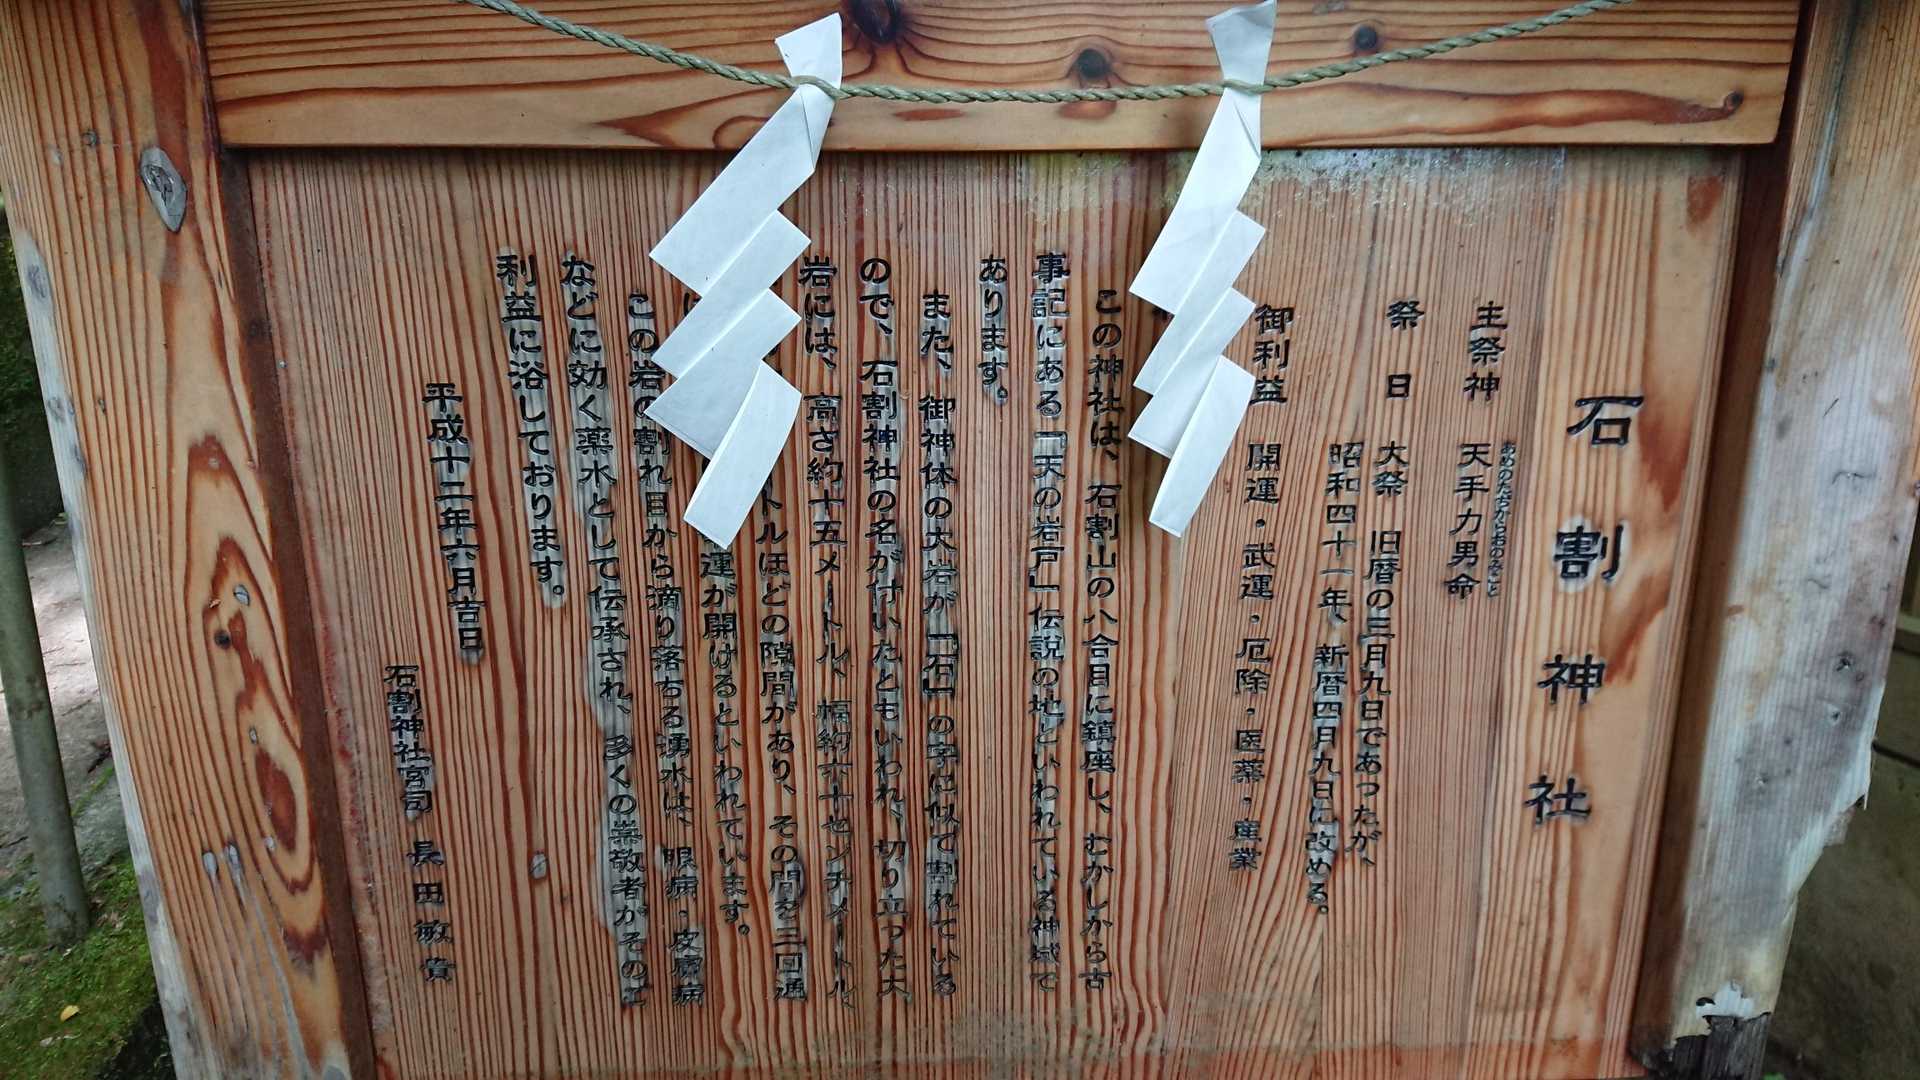 石割神社
主祭神 天手力男命
あめのたぢからおのみこと
祭日 大祭 旧暦の三月九日であったが、
昭和四十一年、新暦四月九日に改める。
御利益 開運・武運・厄除・医薬・産業
この神社は、石割山の八合目に鎮座し、むかしから古
事記にある「天の岩戸」伝説の地といわれている神域で
あります。
また、御神体の大岩が「石」の字に似て割れている
ので、石割神社の名が付いたともいわれ、切り立った大
岩には、高さ約十五メートル、幅約六十センチメートル、
トルほどの隙間があり、その間を三回通
運が開けるといわれています。
この岩の割れ目から滴り落ちる湧水は、眼病・皮膚病
などに効く薬水として伝承され、多くの崇敬者がそのご
利益に浴しております。
平成十二年六月吉日
石割神社宮司 長田敏貴